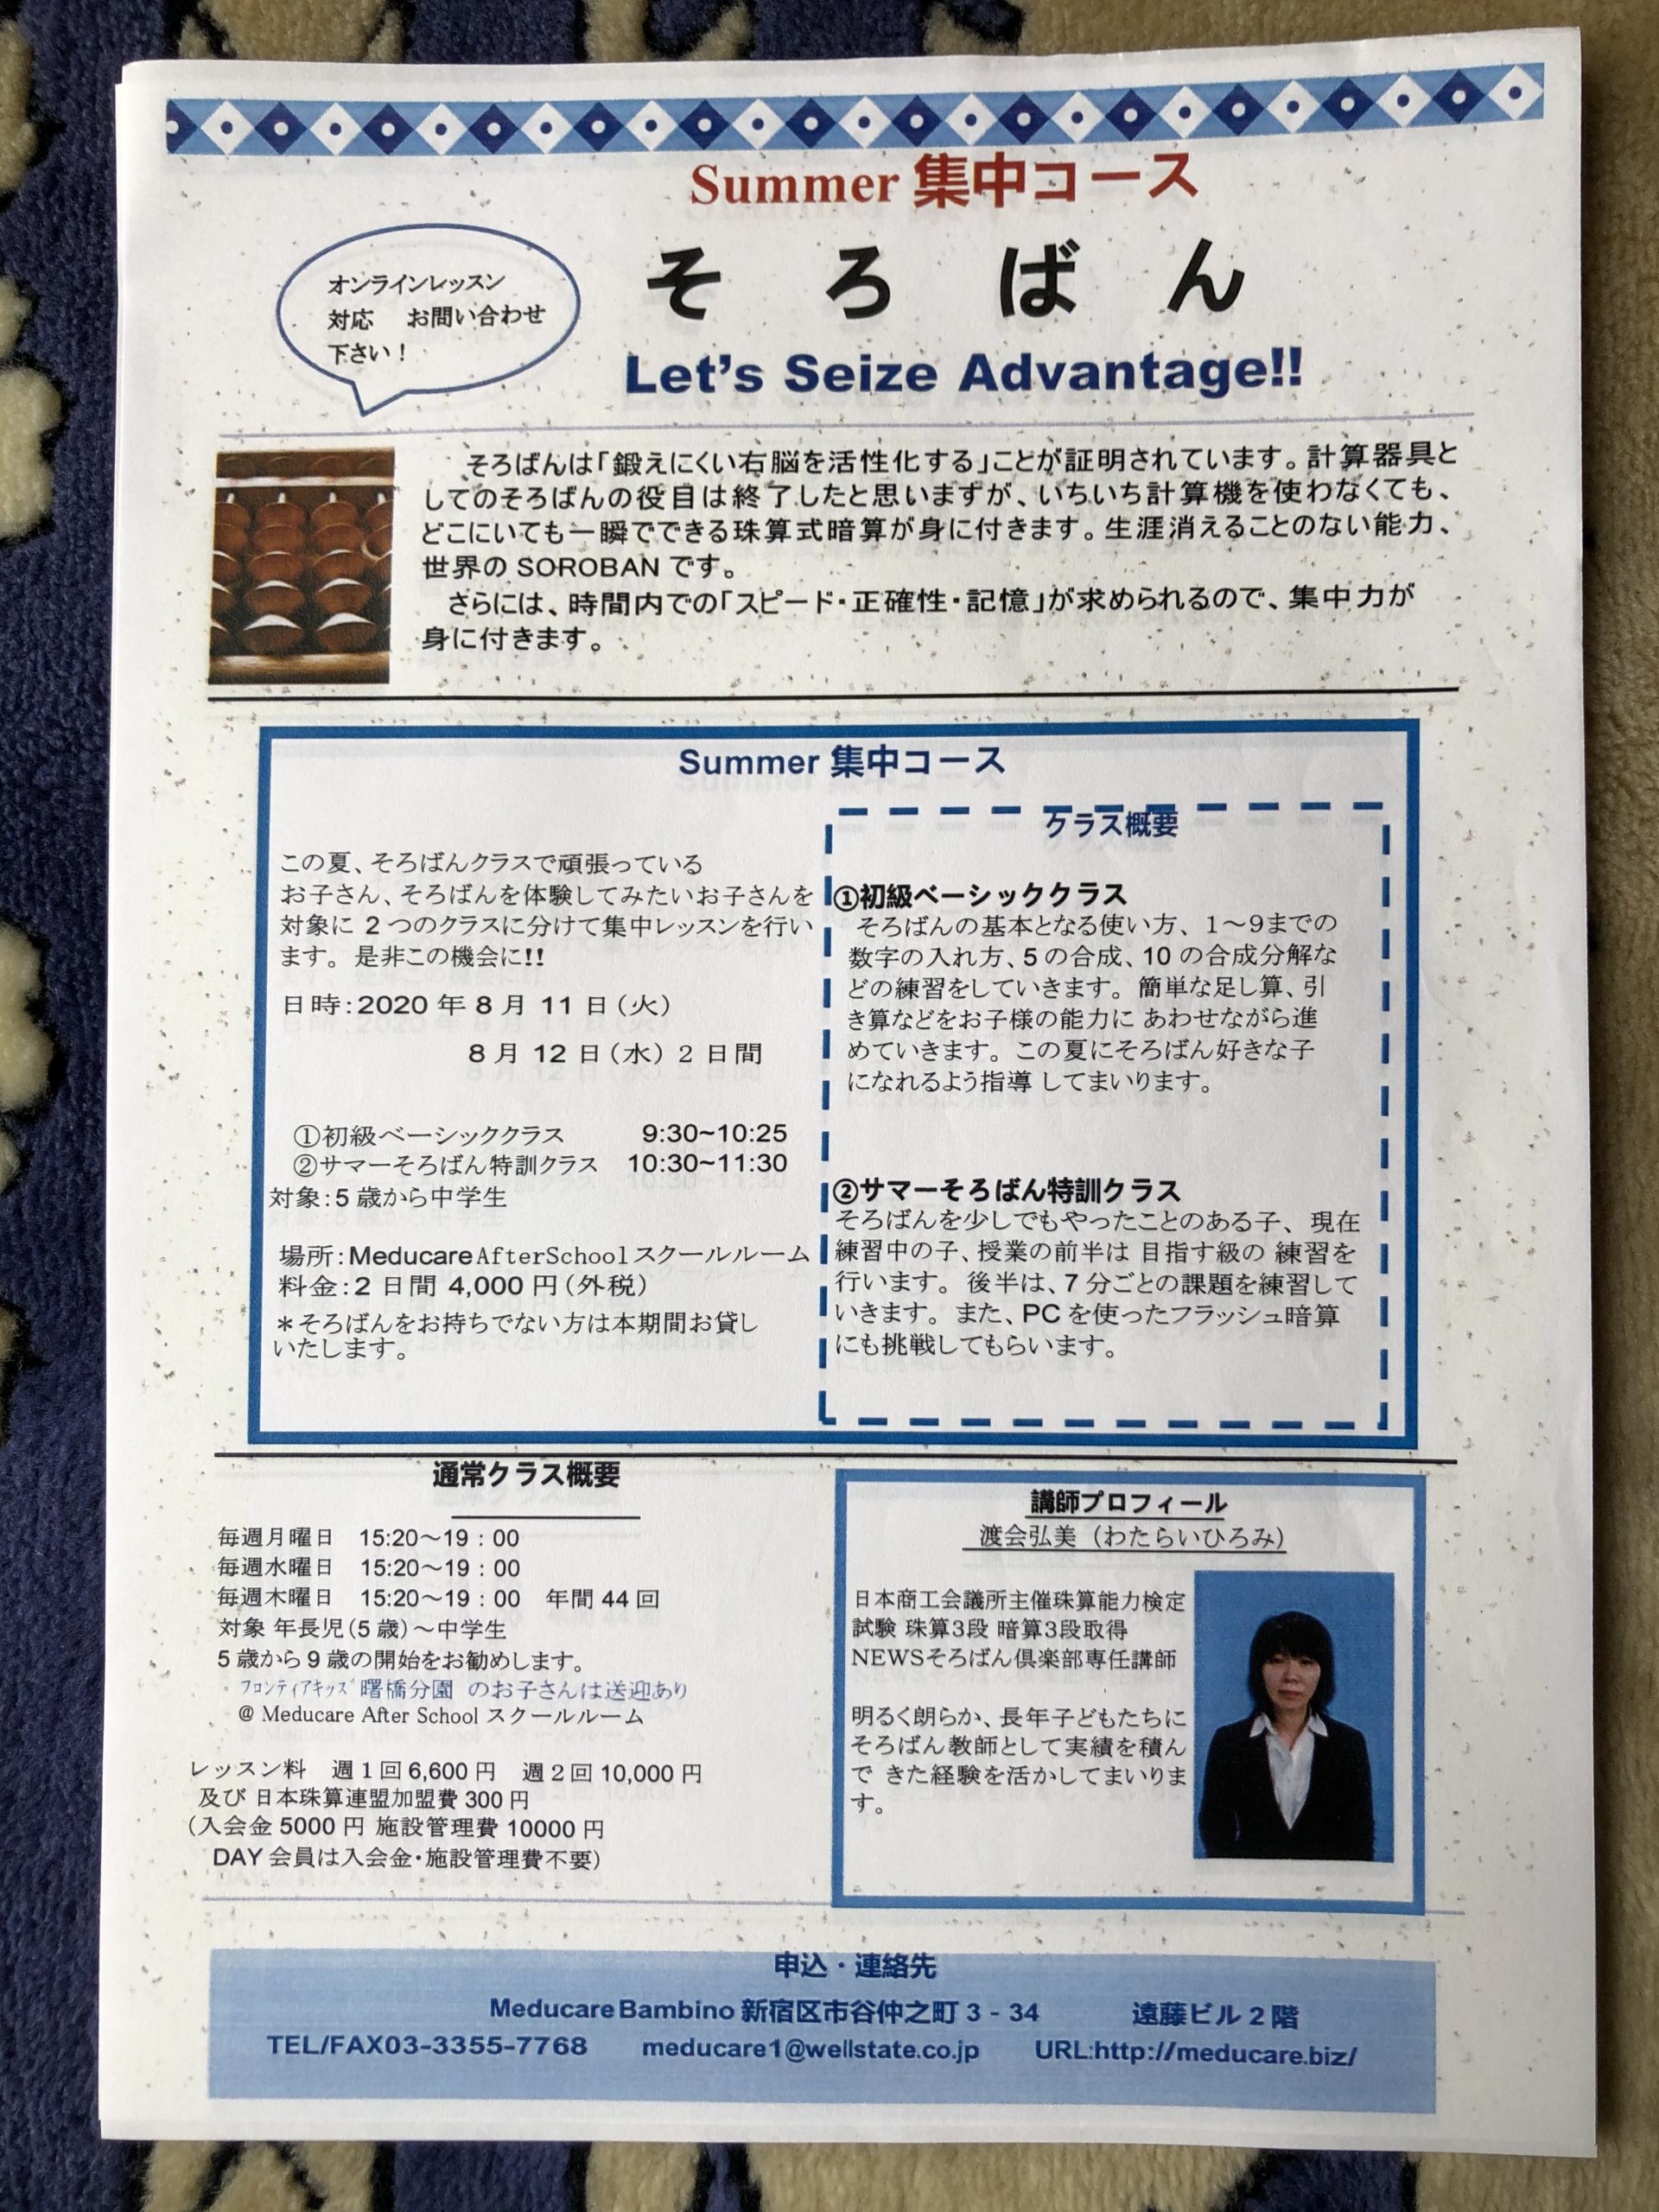 Summer 集中コース
オンラインレッスン
対応 お問い合わせ
下さい！
そろばん
Let's Seize Advantage!!
そろばんは「鍛えにくい右脳を活性化する」ことが証明されています。計算器具と
してのそろばんの役目は終了したと思いますが、いちいち計算機を使わなくても、
どこにいても一瞬でできる珠算式暗算が身に付きます。生涯消えることのない能力、
世界の SOROBAN です。
さらには、時間内での「スピード・正確性・記憶」が求められるので、集中力が
身に付きます。
Summer 集中コース
この夏、そろばんクラスで頑張っている
お子さん、そろばんを体験してみたいお子さんを
対象に 2 つのクラスに分けて集中レッスンを行い
ます。是非この機会に!!
日時：2020 年 8 月 11 日（火）
8 月 12 日（水）2 日間
①初級ベーシッククラス 9:30~10:25
②サマーそろばん特訓クラス 10:30~11:30
対象：5 歳から中学生
場所：Meducare AfterSchool スクールルーム
料金：2 日間 4,000 円（外税）
＊そろばんをお持ちでない方は本期間お貸し
いたします。
クラス概要
①初級ベーシッククラス
そろばんの基本となる使い方、1～9までの
数字の入れ方、5 の合成、10 の合成分解な
どの練習をしていきます。簡単な足し算、引
き算などをお子様の能力に あわせながら進
めていきます。この夏にそろばん好きな子
になれるよう指導 してまいります。
②サマーそろばん特訓クラス
そろばんを少しでもやったことのある子、 現在
練習中の子、授業の前半は 目指す級の 練習を
行います。後半は、7 分ごとの課題を練習して
いきます。また、PC を使ったフラッシュ暗算
にも挑戦してもらいます。
通常クラス概要
毎週月曜日 15:20～19：00
毎週水曜日 15:20～19：00
毎週木曜日 15:20～19：00 年間 44 回
対象 年長児（5 歳）～中学生
5 歳から 9 歳の開始をお勧めします。
ﾌﾛﾝﾃｨｱｷｯｽﾞ曙橋分園 のお子さんは送迎あり
@ Meducare After School スクールルーム
レッスン料 週 1 回 6,600 円 週 2 回 10,000 円
及び 日本珠算連盟加盟費 300 円
（入会金 5000 円 施設管理費 10000 円
DAY 会員は入会金・施設管理費不要）
講師プロフィール
渡会弘美（わたらいひろみ）
日本商工会議所主催珠算能力検定
試験 珠算3段 暗算3段取得
NEWSそろばん倶楽部専任講師
明るく朗らか、長年子どもたちに
そろばん教師として実績を積ん
で きた経験を活かしてまいりま
す。
申込・連絡先
Meducare Bambino 新宿区市谷仲之町 3 - 34 遠藤ビル 2 階
TEL/FAX03-3355-7768 meducare1@wellstate.co.jp URL:http://meducare.biz/